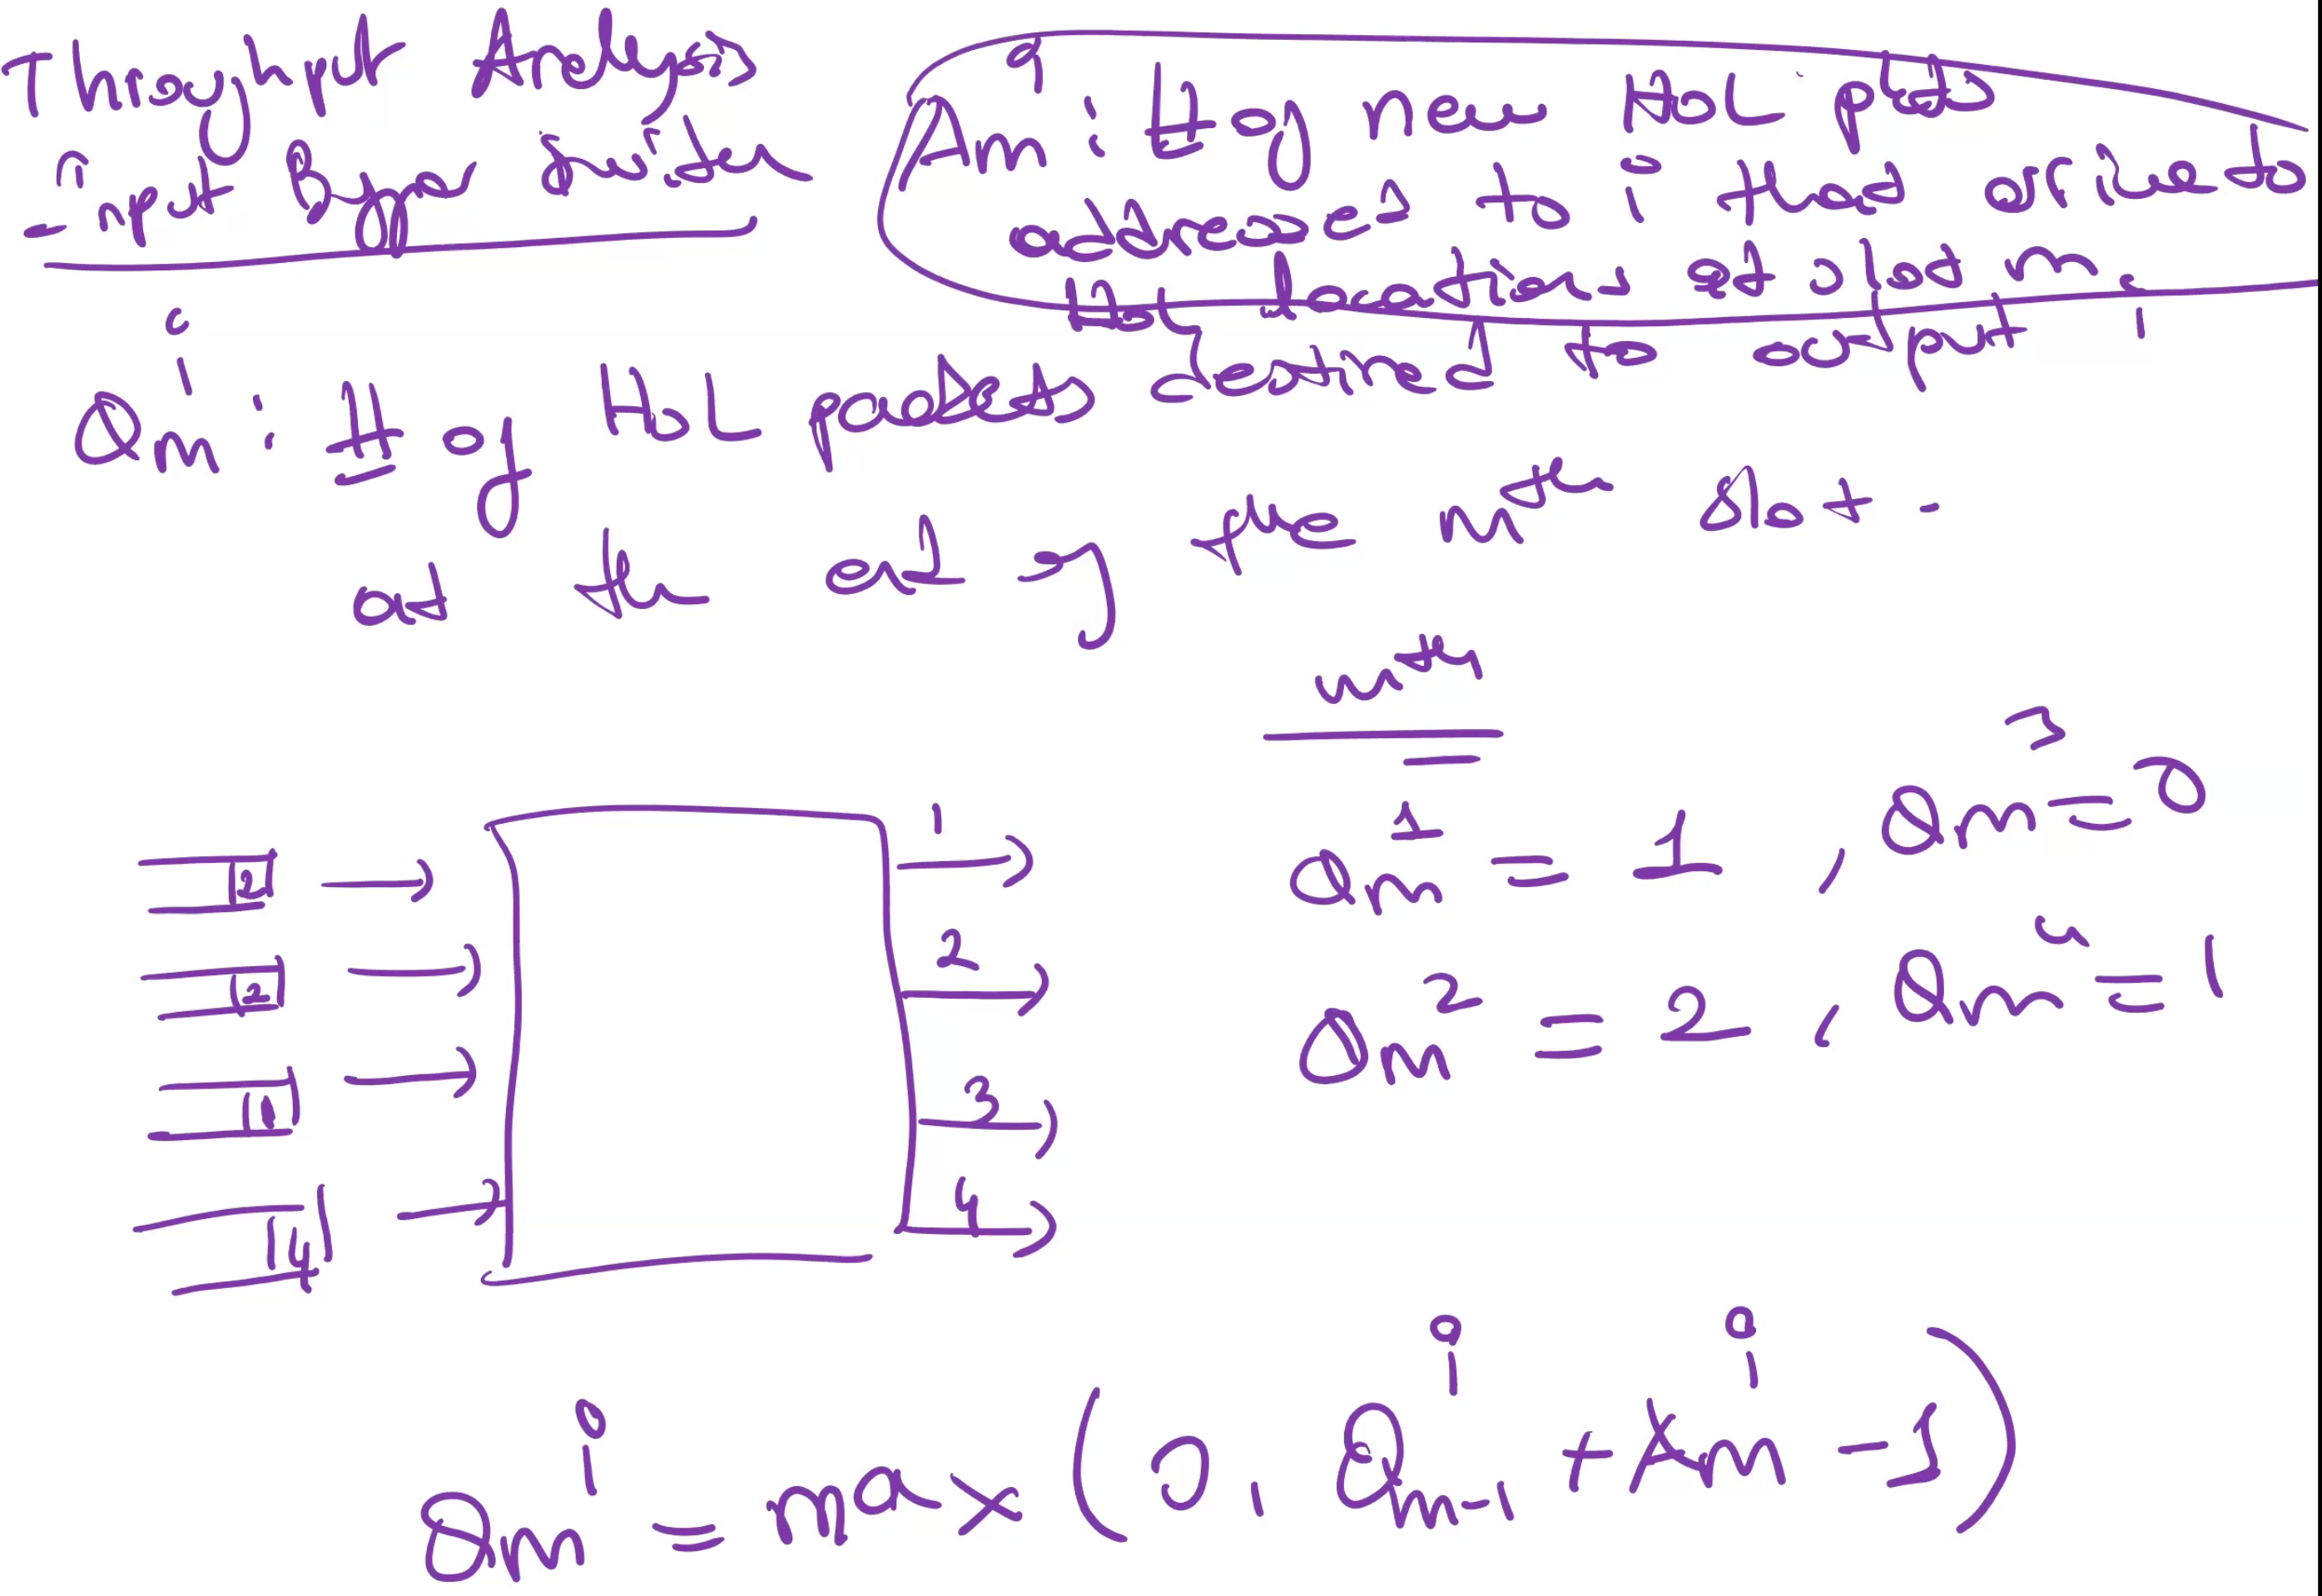 Throughput Analysis
input Buffer switch
A_m^i : # of new HOL pkts
addresses to i that arrived to
HoL locations at slot m.
Q_m^i : # of HOL packets destined to output i
at the end of the mth slot.
mth
Q_m^1 = 1 , Q_m^3 = 0
Q_m^2 = 2 , Q_m^4 = 1
1
2
2
2
1
3
4
4
Q_m^i = max (0, Q_{m-1}^i + A_m^i - 1)